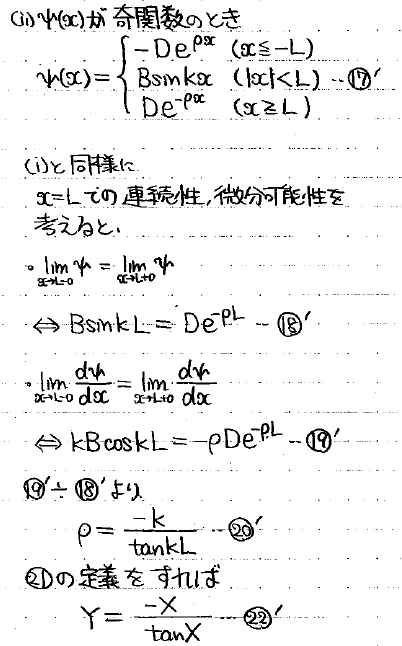 (ii) ψ(x)が奇関数のとき
ψ(x) = { -De^{ρx} (x≦-L)
Bsinkx (|x|<L) …⑰′
De^{-ρx} (x≧L)
(i)と同様に
x=Lでの連続性,微分可能性を
考えると、
・lim_{x→L-0} ψ = lim_{x→L+0} ψ
⇔ BsinkL = De^{-ρL} …⑱′
・lim_{x→L-0} dψ/dx = lim_{x→L+0} dψ/dx
⇔ kBcoskL = -ρDe^{-ρL} …⑲′
⑲′÷⑱′より
ρ = -k/tankL …⑳′
㉑の定義をすれば
Y = -X/tanX …㉒′